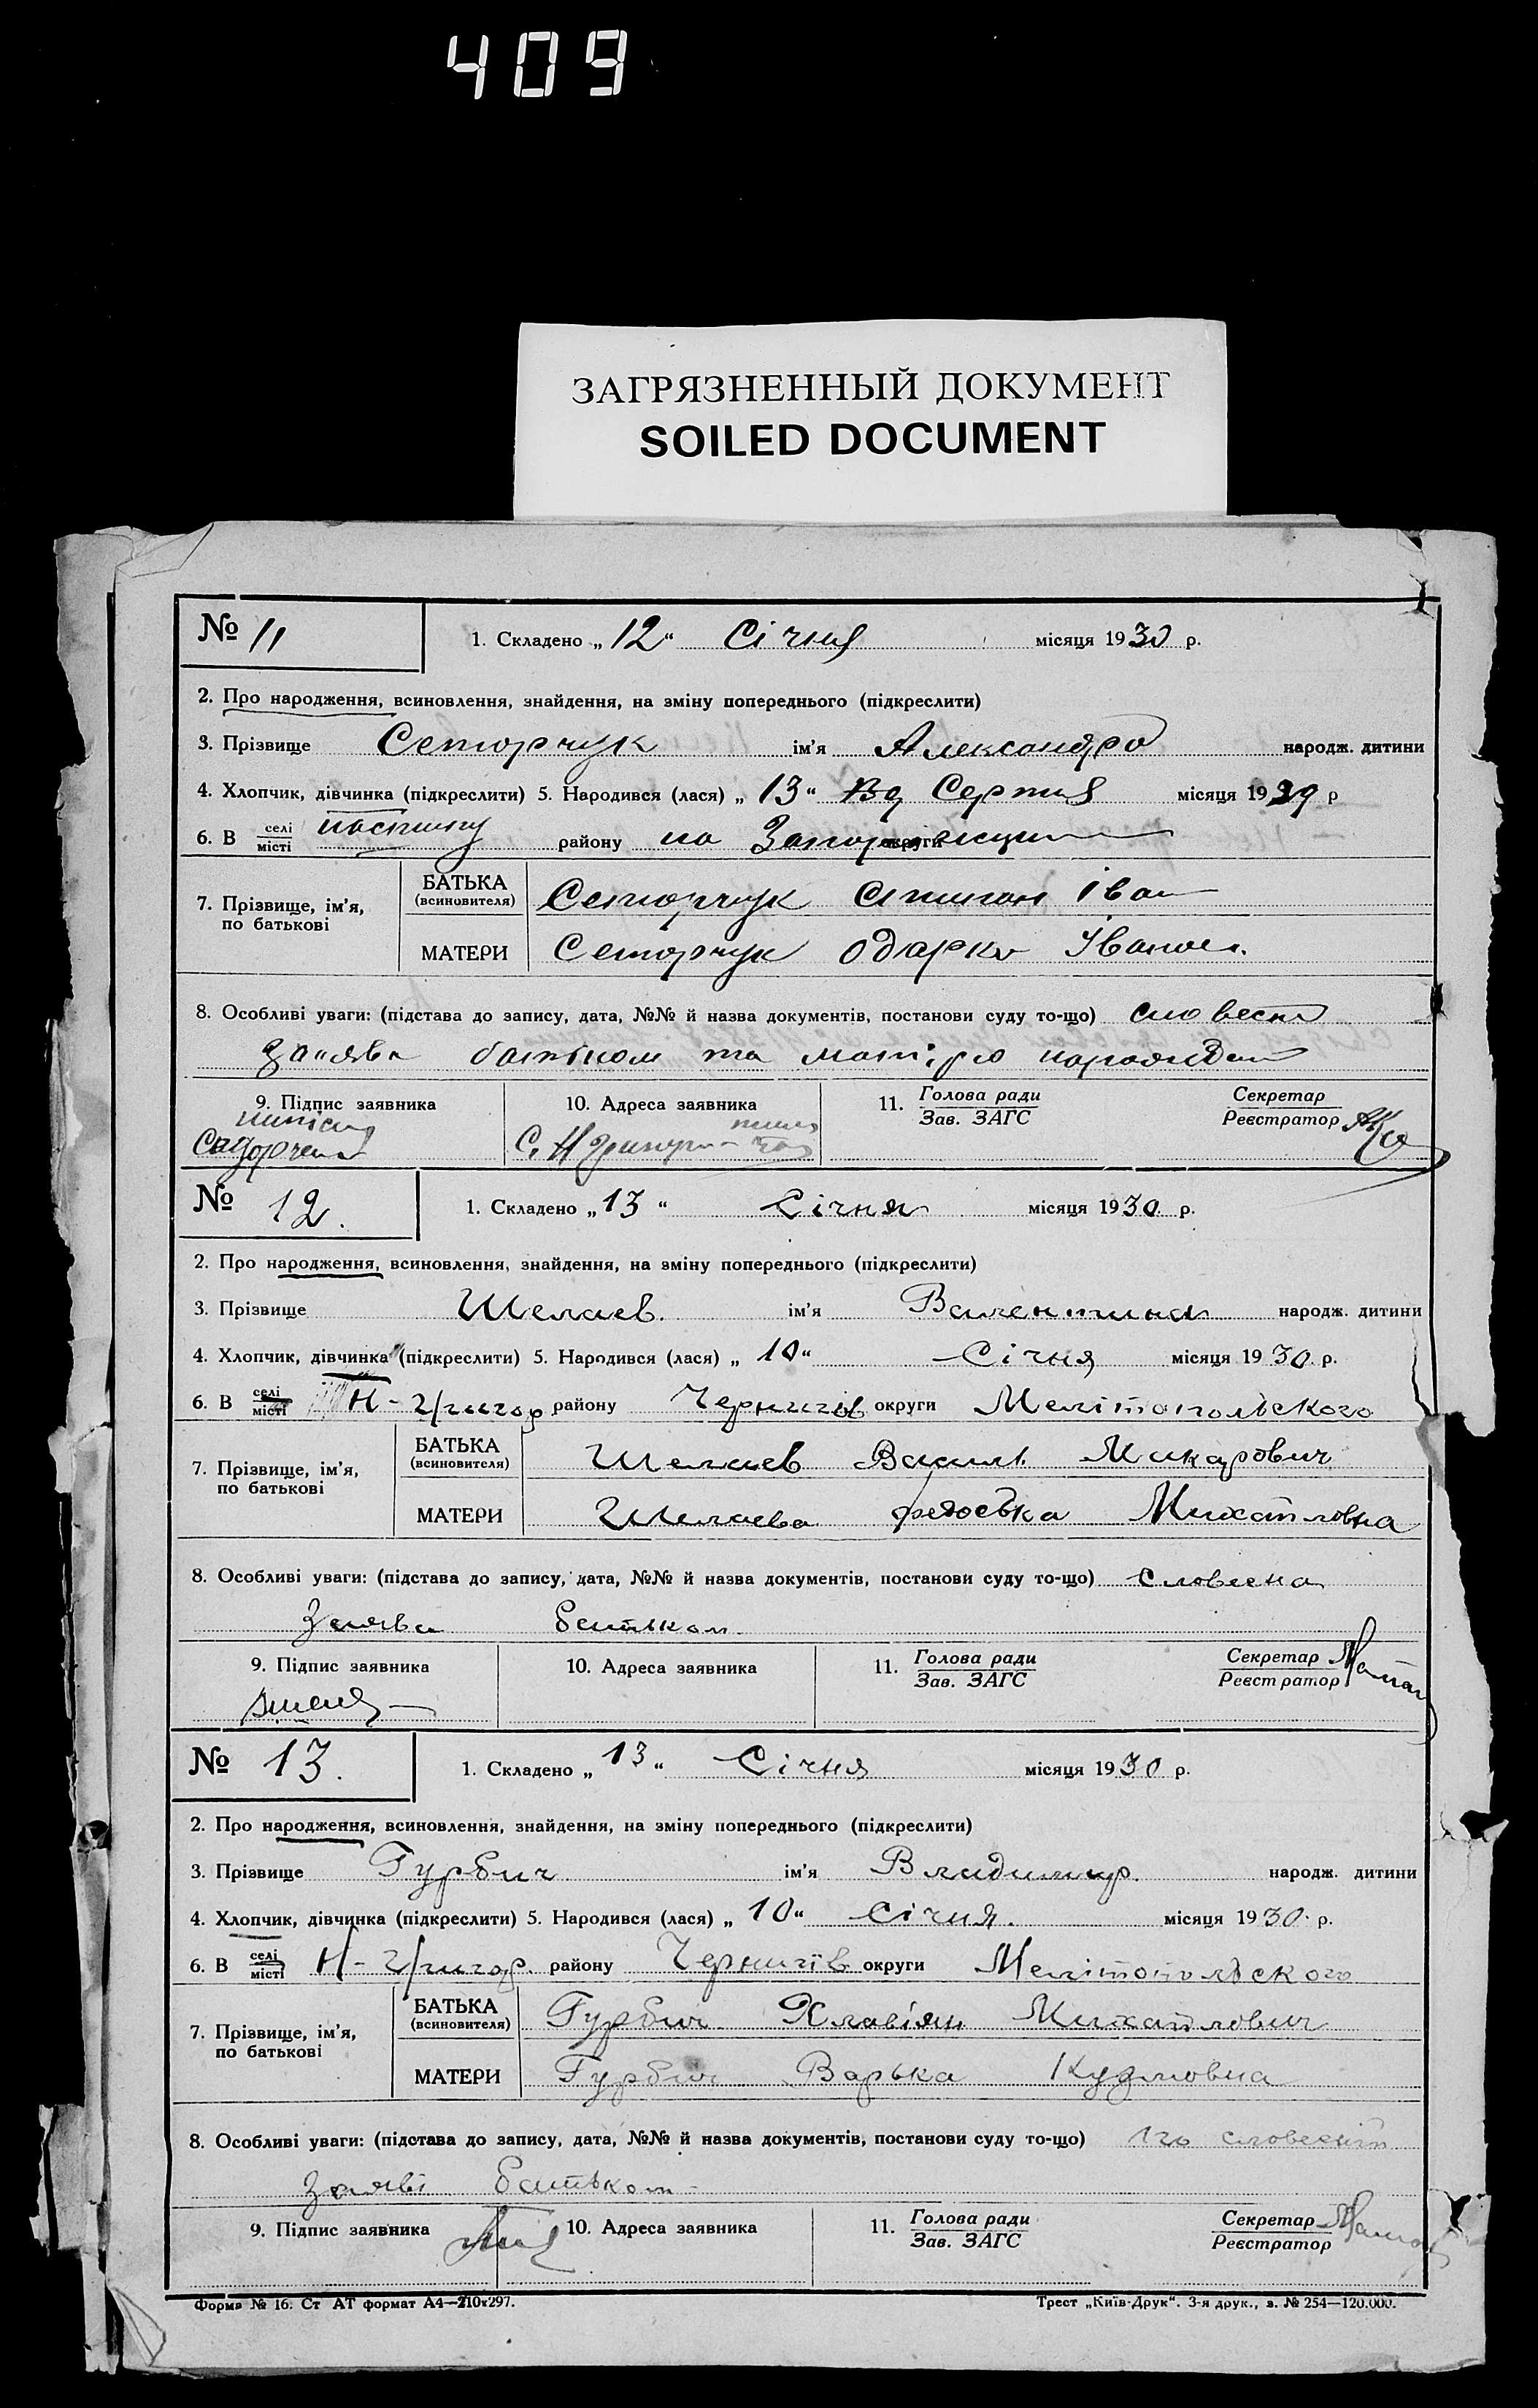 409
ЗАГРЯЗНЕННЫЙ ДОКУМЕНТ
SOILED DOCUMENT
№ 11
1. Складено „12“ Січня місяця 1930 р.
2. Про народження, всиновлення, знайдення, на зміну попереднього (підкреслити)
3. Прізвище ім'я Александра народж. дитини
4. Хлопчик, дівчинка (підкреслити) 5. Народився (лася) „13“ Серпня місяця 1929 р
6. В селі місті району на округи
7. Прізвище, ім'я, по батькові
БАТЬКА (всиновителя) Іван
МАТЕРИ Одарка Іванов.
8. Особливі уваги: (підстава до запису, дата, №№ й назва документів, постанови суду то-що) словесна
заява батьком та матірю
9. Підпис заявника
10. Адреса заявника
11. Голова ради
Зав. ЗАГС
Секретар
Реєстратор
№ 12.
1. Складено „13“ Січня місяця 1930 р.
2. Про народження, всиновлення, знайдення, на зміну попереднього (підкреслити)
3. Прізвище Шелаев. ім'я Валентина народж. дитини
4. Хлопчик, дівчинка (підкреслити) 5. Народився (лася) „10“ Січня місяця 1930 р.
6. В селі місті Н-Григор району Чернигів округи Мелітопольского
7. Прізвище, ім'я, по батькові
БАТЬКА (всиновителя) Шелаев Василь Макарович
МАТЕРИ Шелаева Федоська Михайловна
8. Особливі уваги: (підстава до запису, дата, №№ й назва документів, постанови суду то-що) словесна
Заява батьком
9. Підпис заявника
10. Адреса заявника
11. Голова ради
Зав. ЗАГС
Секретар
Реєстратор
№ 13.
1. Складено „13“ Січня місяця 1930 р.
2. Про народження, всиновлення, знайдення, на зміну попереднього (підкреслити)
3. Прізвище Гурбич ім'я Владимир. народж. дитини
4. Хлопчик, дівчинка (підкреслити) 5. Народився (лася) „10“ Січня. місяця 1930 р.
6. В селі місті Н-Григор. району Чернигів округи Мелітопольского
7. Прізвище, ім'я, по батькові
БАТЬКА (всиновителя) Гурбич Михайлович
МАТЕРИ Гурбич Варька Кузмовна
8. Особливі уваги: (підстава до запису, дата, №№ й назва документів, постанови суду то-що) по словесній
заяві батьком
9. Підпис заявника
10. Адреса заявника
11. Голова ради
Зав. ЗАГС
Секретар
Реєстратор
Форма № 16. Ст АТ формат А4—210х297.
Трест „Київ-Друк“. 3-я друк., з. № 254—120.000.